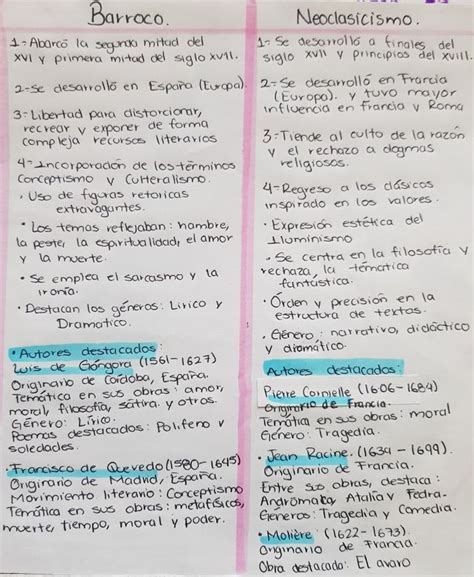 Barroco.
1- Abarcó la segunda mitad del
XVI y primera mitad del siglo XVII.
2- Se desarrolló en España (Europa).
3- Libertad para distorcionar,
recrear y exponer de forma
compleja recursos literarios
4- Incorporación de los términos
Conceptismo y Culteralismo.
• Uso de figuras retoricas
extravagantes.
• Los temas reflejaban: hambre,
la peste, la espiritualidad, el amor
y la muerte.
• Se emplea el sarcasmo y la
ironía.
• Destacan los géneros: Lirico y
Dramatico.
• Autores destacados:
Luis de Góngora (1561-1627)
Originario de Cordoba, España.
Temática en sus obras: amor,
moral, filosofía, sátira y otros.
Género: Lírico.
Poemas destacados: Polifeno y
soledades.
• Francisco de Quevedo (1580-1645)
Originario de Madrid, España.
Movimiento literario: Conceptismo
Temática en sus obras: metafísicos,
muerte, tiempo, moral y poder.
Neoclasicismo.
1- Se desarrolló a finales del
siglo XVII y principios del XVIII.
2- Se desarrolló en Francia
(Europa). y tuvo mayor
influencia en Francia y Roma
3- Tiende al culto de la razón
y el rechazo a dogmas
religiosos.
4- Regreso a los clásicos
inspirado en los valores.
• Expresión estética del
Iluminismo
• Se centra en la filosofía y
rechaza, la temática
fantástica.
• Orden y precisión en la
estructura de textos.
• Género: narrativo, didáctico
y dramático.
Autores destacados:
Pierre Cornielle (1606-1684)
Originario de Francia.
Temática en sus obras: moral
Género: Tragedia.
• Jean Racine. (1634-1699).
Originario de Francia.
Entre sus obras, destaca:
Andrómata, Atalia y Fedra.
Géneros: Tragedia y Comedia.
• Molière (1622-1673).
Originario de Francia.
Obra destacada: El avaro